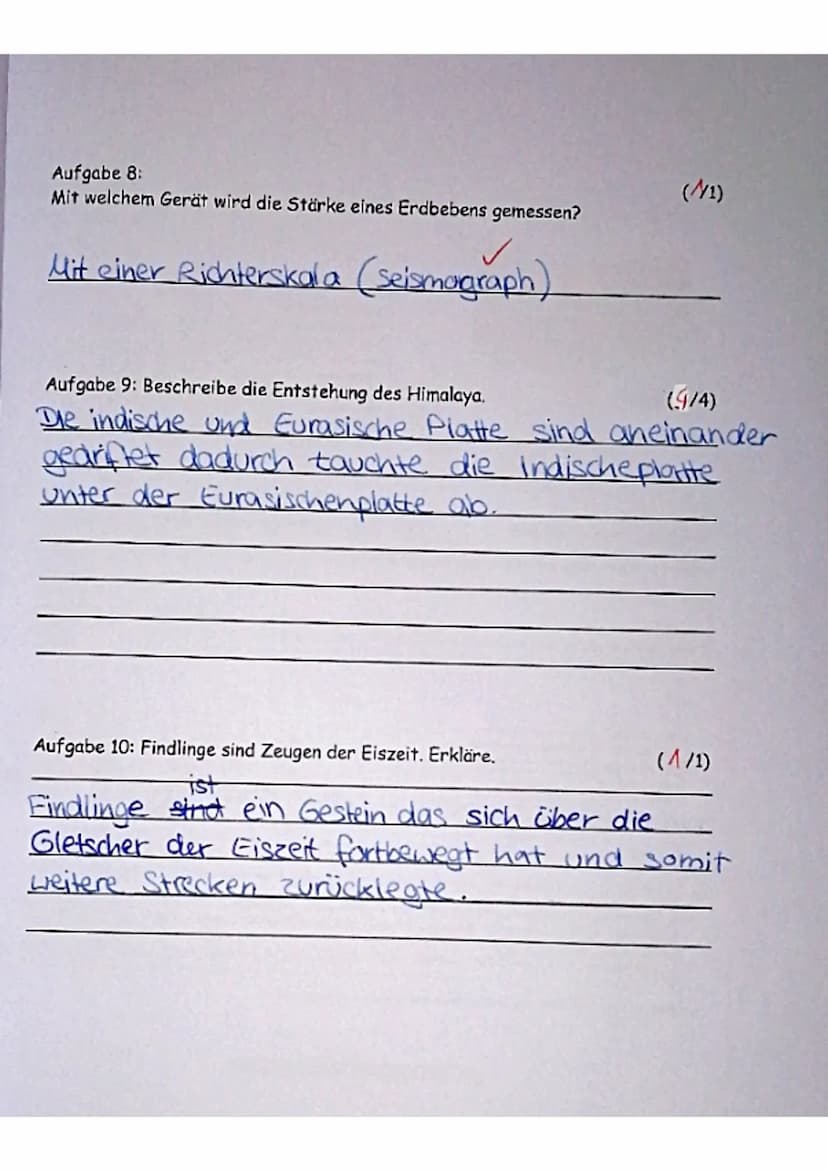 Aufgabe 8:
Mit welchem Gerät wird die Stärke eines Erdbebens gemessen? (1/1)
Mit einer Richterskala (Seismograph)
Aufgabe 9: Beschreibe die Entstehung des Himalaya. (4/4)
Die indische und Eurasische Platte sind aneinander
gedriftet dadurch tauchte die Indischeplatte
unter der Eurasischenplatte ab.
Aufgabe 10: Findlinge sind Zeugen der Eiszeit. Erkläre. (1/1)
ist
Findlinge sind ein Gestein das sich über die
Gletscher der Eiszeit fortbewegt hat und somit
weitere Strecken zurücklegte.